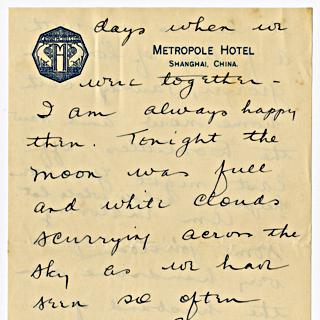 days when we
METROPOLE HOTEL
SHANGHAI, CHINA.
M
were together -
I am always happy
then. Tonight the
moon was full
and white clouds
scurrying across the
sky as we have
seen so often